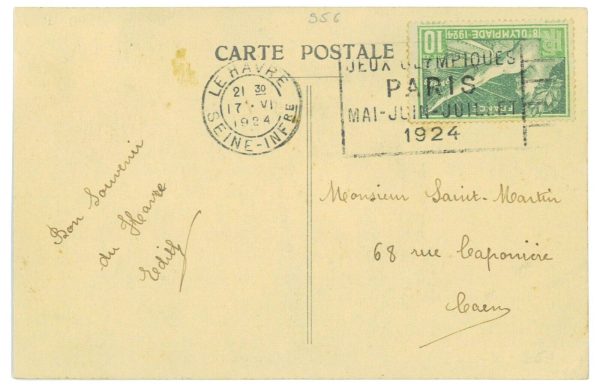 956
CARTE POSTALE
LE HAVRE
21 30
17 - VI
1924
SEINE-INFRE
JEUX OLYMPIQUES
PARIS
MAI-JUIN-JUILLET
1924
8e OLYMPIADE-1924
10
Bon Souvenir
du Havre
Monsieur Saint-Martin
68 rue Caponière
Caen